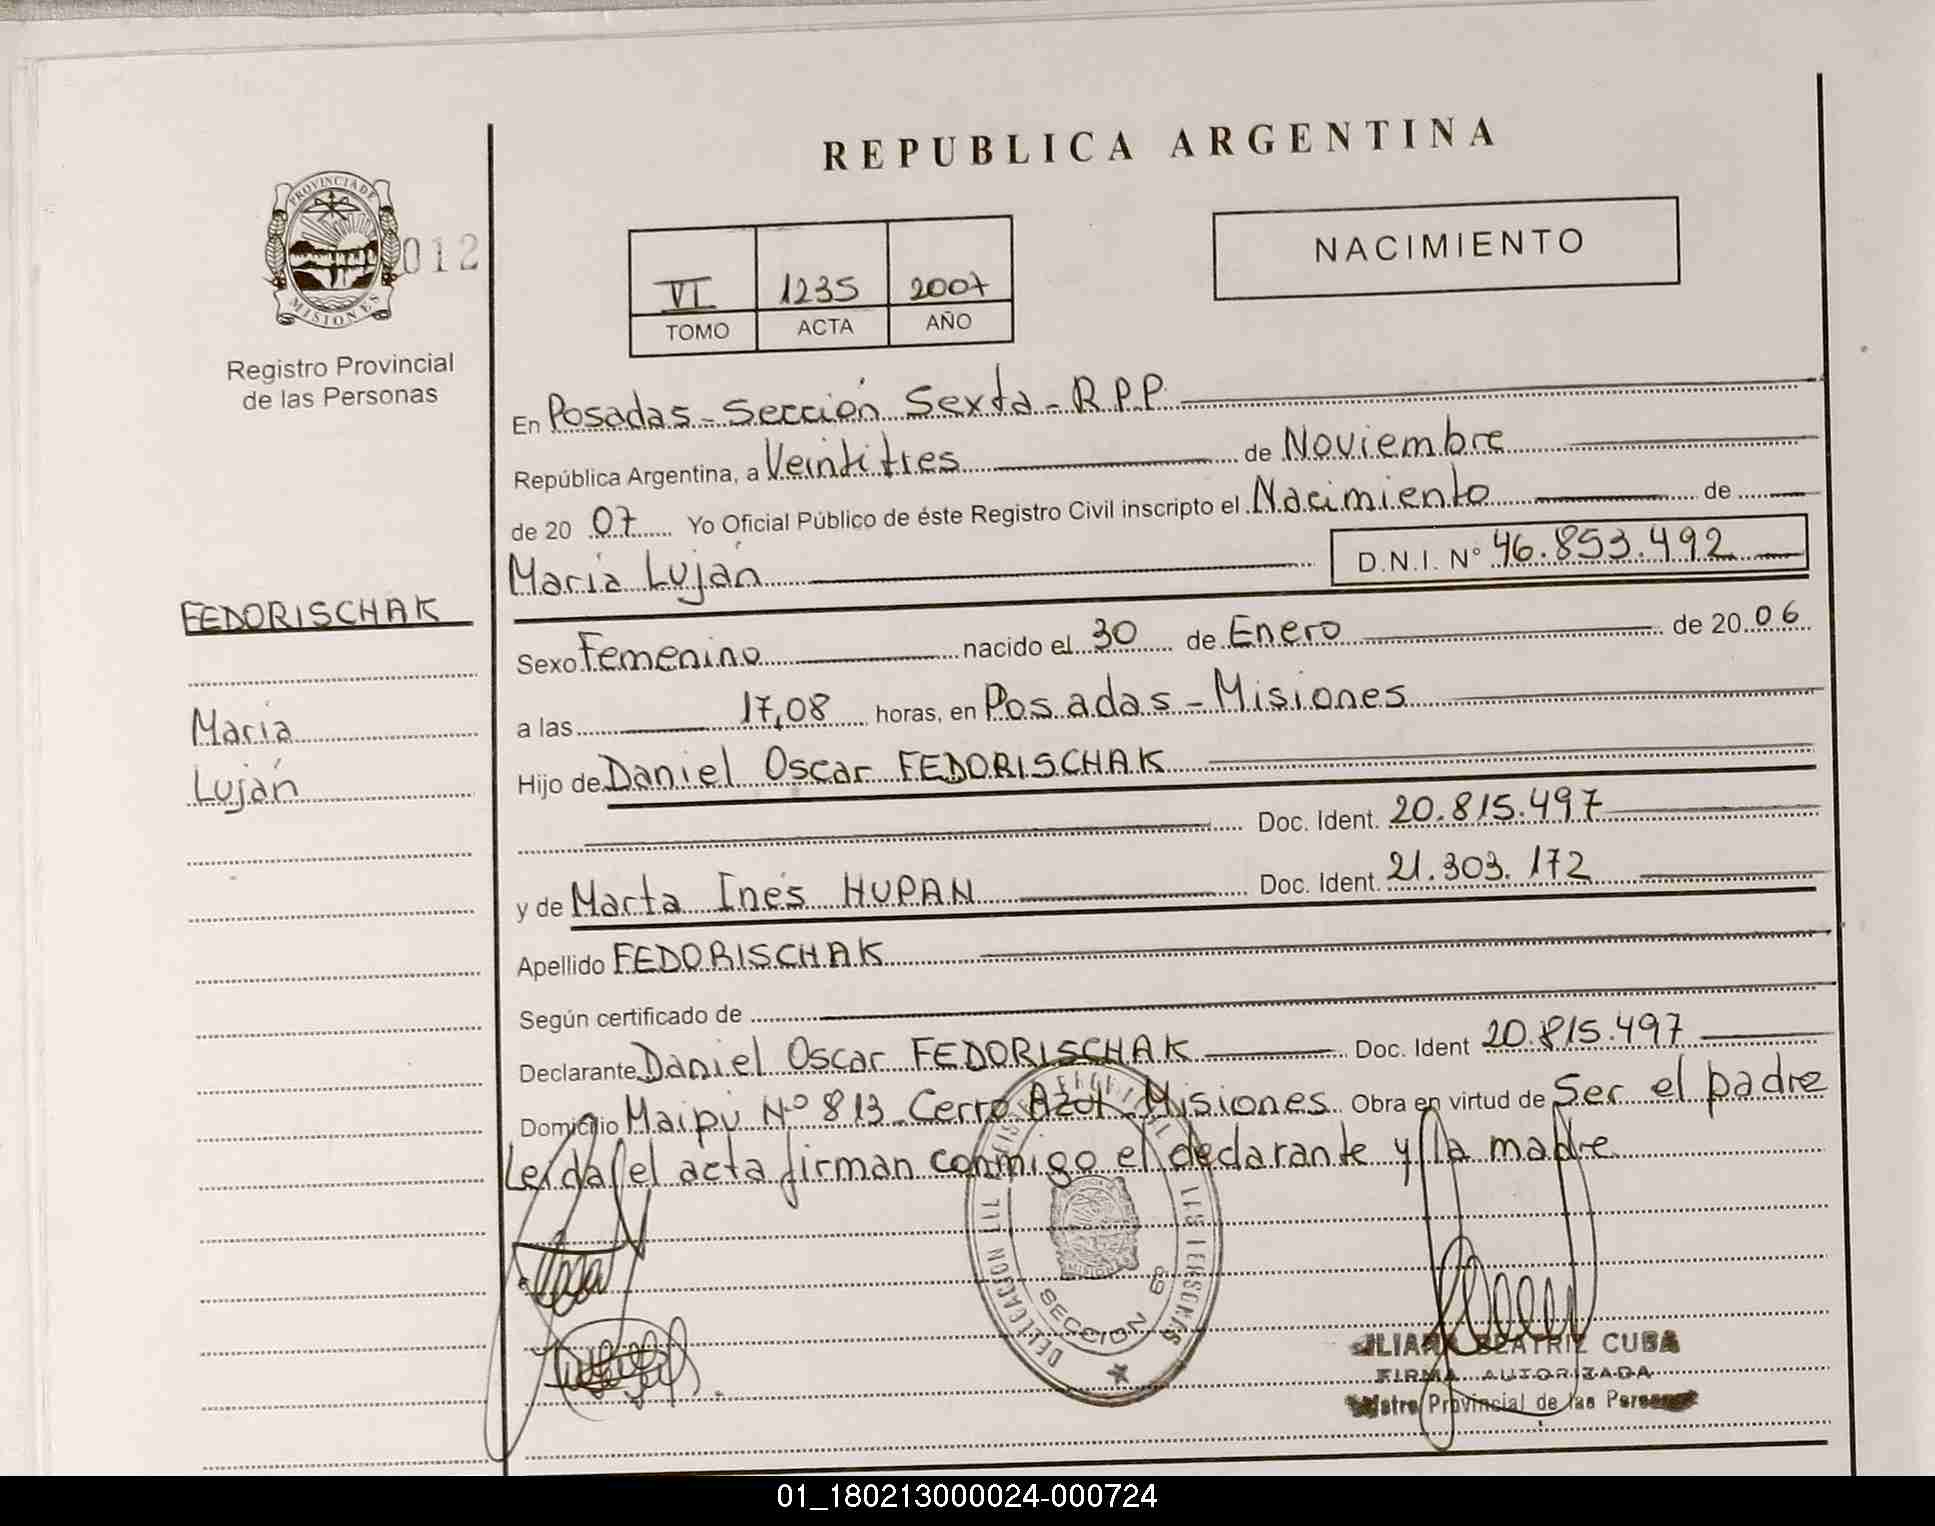 REPUBLICA ARGENTINA
PROVINCIA DE
MISIONES
012
Registro Provincial
de las Personas
VI 1235 2007
TOMO ACTA AÑO
NACIMIENTO
En Posadas - Sección Sexta - R.P.P.
República Argentina, a Veintitres de Noviembre
de 20 07 Yo Oficial Público de éste Registro Civil inscripto el Nacimiento de
María Luján D.N.I. N° 46.853.492
FEDORISCHAK
María
Luján
Sexo Femenino nacido el 30 de Enero de 20 06
a las 17,08 horas, en Posadas - Misiones
Hijo de Daniel Oscar FEDORISCHAK
Doc. Ident. 20.815.497
y de Marta Inés HUPAN Doc. Ident. 21.303.172
Apellido FEDORISCHAK
Según certificado de
Declarante Daniel Oscar FEDORISCHAK Doc. Ident 20.815.497
Domicilio Maipú N° 813 - Cerro Azul - Misiones Obra en virtud de Ser el padre
Leída el acta firman conmigo el declarante y la madre
SECCION 6
BEATRIZ CUBA
FIRMA AUTORIZADA
Provincial de las
01_180213000024-000724